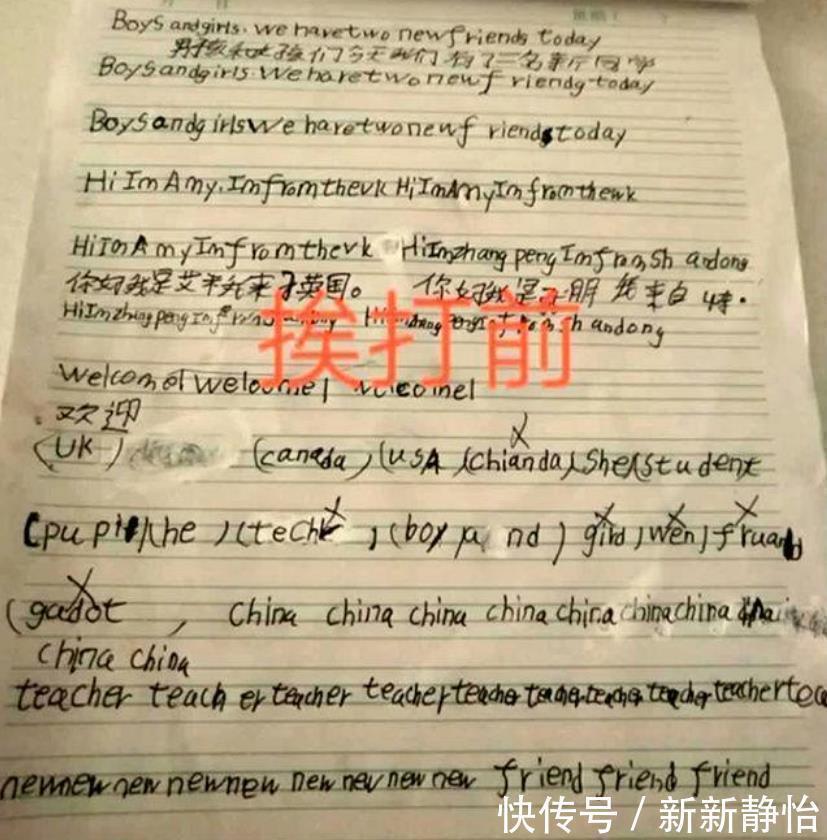 Boys andgirls. we havetwo newfriends today
男孩和女孩们今天我们有了二名新同学
Boysandgirls. Wehavetwonewf riendg today
Boysandg irlsWe havetwonewf riendstoday
Hi ImAmy. Imfromthevk HiImAmyImfromthewk
HiImAmyImfromthevk HiImzhangpengImfromSh andong
你好我是艾米我来于英国。 你好我是 朋 我来自
HiImzhangpengImf 
挨打前
welcome!welcome! welcome!
欢迎
(UK) (canada) (USA (chianda) she (student
(pu pi he ) (tech ) (boy nd) gird, wen, fruand
(gadot , China china china china china china china
china china
teacher teach er teacher teacher teacher teacher teacher teacher teacher tea
newnew new newnew new new new new friend friend friend
快传号 / 新新静怡